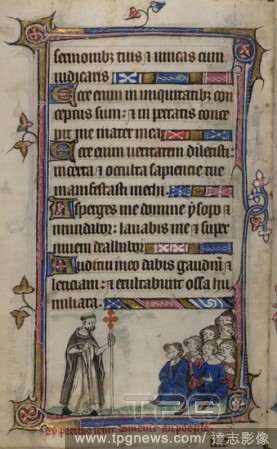 sermonibus tuis & vincas cum
iudicaris
Ecce enim in iniquitatibz con
ceptus sum: & in peccatis conce
pit me mater mea
Ecce enim veritatem dilexisti:
incerta & occulta sapiencie tue
manifestasti michi
Asperges me domine ysopo &
mundabor: lavabis me & super
nivem dealbabor
Auditui meo dabis gaudium &
leticiam: & exultabunt ossa hu
miliata
TPG
www.tpgnews.com/达志影像